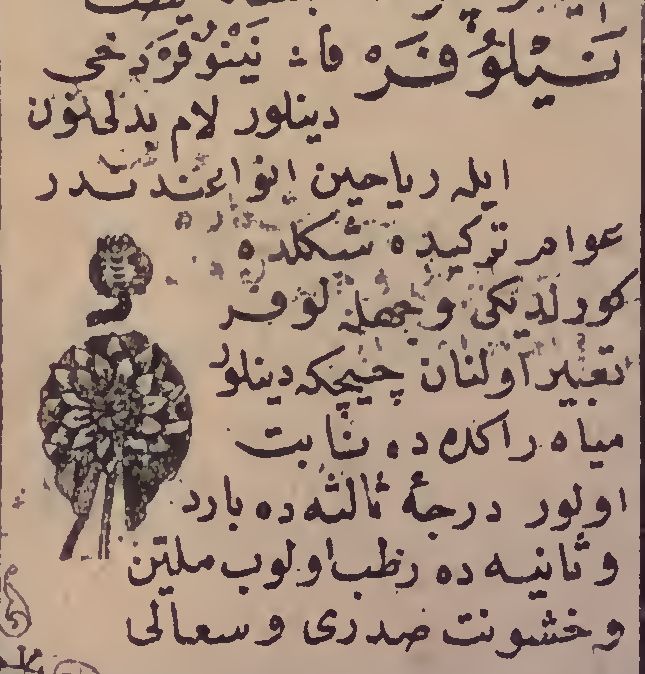 نَیْلُوفَرْ فا؞ نَیْنُوفَرَ دخی
دینلور لام بدلی نون
ایله ریاحین انواعندندر
عوام ترکیده شکلده
کورلدیکی وجهله لوفر
تعبیر اولنان چیچکه دینلور
میاه راکده ده نابت
اولور درجهٔ ثالثه ده بارد
و ثانیه ده رطب اولوب ملین
و خشونت صدری و سعالی